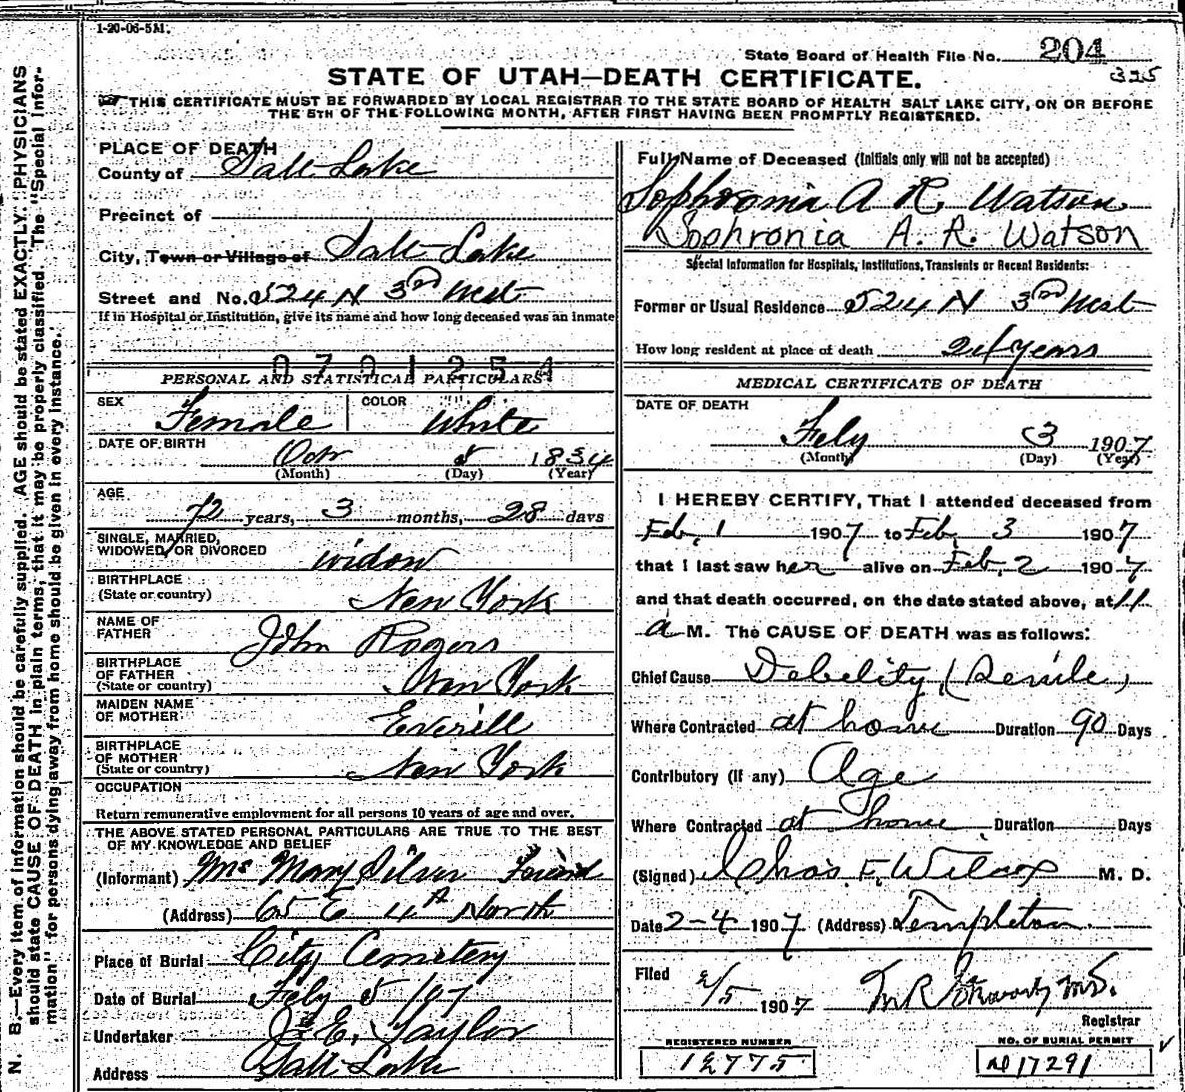 1-20-06-5M.
State Board of Health File No. 204
325
STATE OF UTAH—DEATH CERTIFICATE.
THIS CERTIFICATE MUST BE FORWARDED BY LOCAL REGISTRAR TO THE STATE BOARD OF HEALTH SALT LAKE CITY, ON OR BEFORE
THE 5TH OF THE FOLLOWING MONTH, AFTER FIRST HAVING BEEN PROMPTLY REGISTERED.
N. B.—Every item of information should be carefully supplied. AGE should be stated EXACTLY. PHYSICIANS
should state CAUSE OF DEATH in plain terms, that it may be properly classified. The "Special Infor-
mation" for persons dying away from home should be given in every instance.
PLACE OF DEATH
County of Salt Lake
Precinct of
City, Town or Village of Salt Lake
Street and No. 524 N 3rd West
If in Hospital or Institution, give its name and how long deceased was an inmate
0701254
PERSONAL AND STATISTICAL PARTICULARS
SEX Female COLOR White
DATE OF BIRTH
5 1834
(Month) (Day) (Year)
AGE
72 years, 3 months, 28 days
SINGLE, MARRIED,
WIDOWED, OR DIVORCED widow
BIRTHPLACE
(State or country) New York
NAME OF
FATHER John Rogers
BIRTHPLACE
OF FATHER
(State or country) New York
MAIDEN NAME
OF MOTHER Everill
BIRTHPLACE
OF MOTHER
(State or country) New York
OCCUPATION
Return remunerative employment for all persons 10 years of age and over.
THE ABOVE STATED PERSONAL PARTICULARS ARE TRUE TO THE BEST
OF MY KNOWLEDGE AND BELIEF
(Informant) Mrs Mary Silver Friend
(Address) 65 E 4th North
Place of Burial City Cemetery
Date of Burial Feby 5/07
Undertaker J. E. Taylor
Address Salt Lake
Full Name of Deceased (Initials only will not be accepted)
Sophronia A R. Watson
Sophronia A. R. Watson
Special Information for Hospitals, Institutions, Transients or Recent Residents:
Former or Usual Residence 524 N 3rd West
How long resident at place of death years
MEDICAL CERTIFICATE OF DEATH
DATE OF DEATH
Feby 3 1907
(Month) (Day) (Year)
I HEREBY CERTIFY, That I attended deceased from
Feb. 1 1907 to Feb. 3 1907
that I last saw her alive on Feb. 2 1907
and that death occurred, on the date stated above, at 11
a M. The CAUSE OF DEATH was as follows:
Chief Cause Debelity (Senile)
Where Contracted at home Duration 90 Days
Contributory (if any) Age
Where Contracted at home Duration Days
(Signed) Chas. F. Wilcox M. D.
Date 2-4 1907 (Address) Templeton
Filed 2/5 1907 M.D.
Registrar
REGISTERED NUMBER
12775
NO. OF BURIAL PERMIT
17291